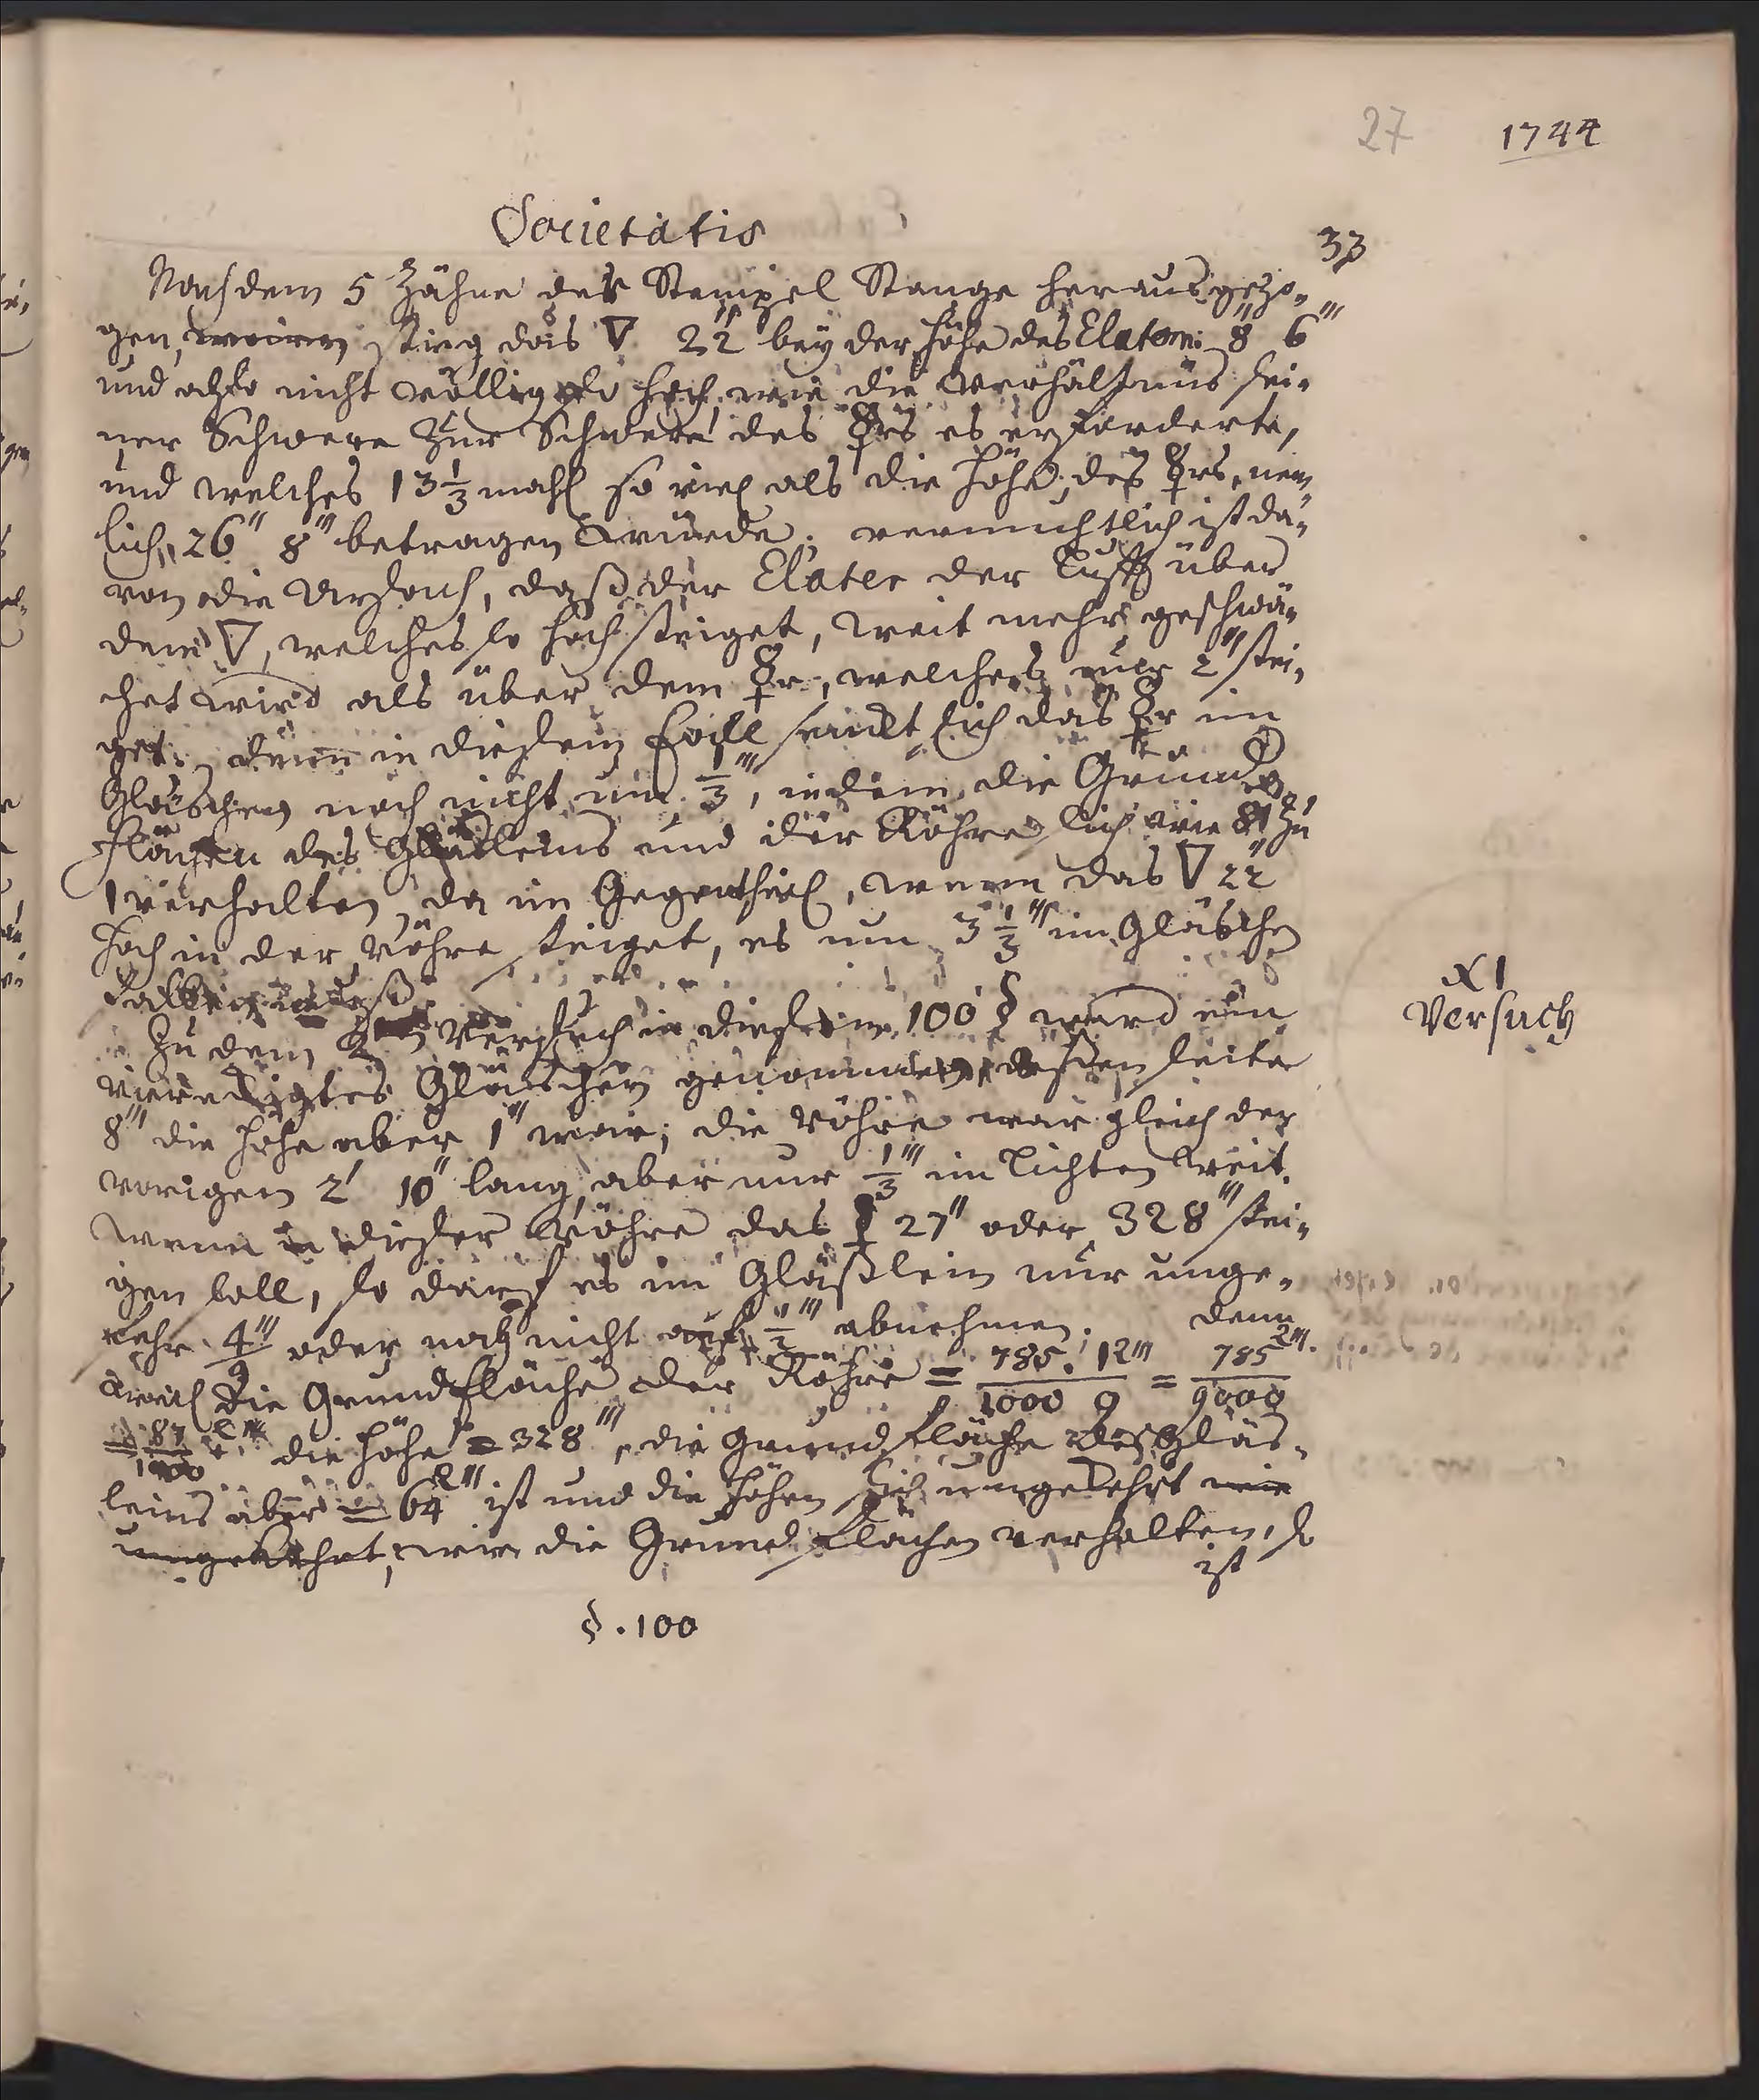 27 1744
Societatis
33
Nachdem 5 Zähne der Stempel Stange herausgezo-
gen, stieg das ▽ 22'' bey der Höhe des Elatom: 8'' 6'''
und also nicht völlig so hoch, wie die Verhältnüs sei-
ner Schwere zur Schwere des ☿rs es erforderte,
und welches 13 1/3 mahl so viel als die Höhe des ☿rs, nem
lich 26'' 8''' betragen würde; vermuthlich ist da-
von die Ursach, daß der Elater der Lufft über
dem ▽, welches so hoch steiget, weit mehr geschwä-
chet wird als über dem ☿r, welches nur 2'' stei-
get. denn in diesem Fall senckt sich das ☿r im
Gläschen noch nicht um 1/3''', indem die Grund
Flächen des Gläsleins und der Röhre sich wie 81 zu
1 verhalten, da im Gegentheil, wenn das ▽ 22''
hoch in der Röhre steiget, es um 3 1/3''' im Gläschen
fallen muß.
Zu dem Versuch in diesem 100 § ward ein
viereckigtes Gläschen genommen, deßen seite
8''' die Höhe aber 1'' war; die Röhre war gleich der
vorigen 2' 10'' lang, aber nur 1/3''' im Lichten weit.
wenn in dieser Röhre das ☿ 27'' oder 328''' stei-
gen soll, so darf es im Gläßlein nur unge-
fehr 4/9''' oder noch nicht auf 1/2''' abnehmen. denn
weil die Grundfläche der Röhre = 785. 1□'''/1000 9 = 785□'''/9000
= 87/1000 □''' die Höhe = 328''', die Grundfläche des Gläs-
leins aber = 64□''' ist und die Höhen sich umgekehrt wie
umgekehrt, wie die Grund Flächen verhalten, so
ist
§. 100
XI
Versuch